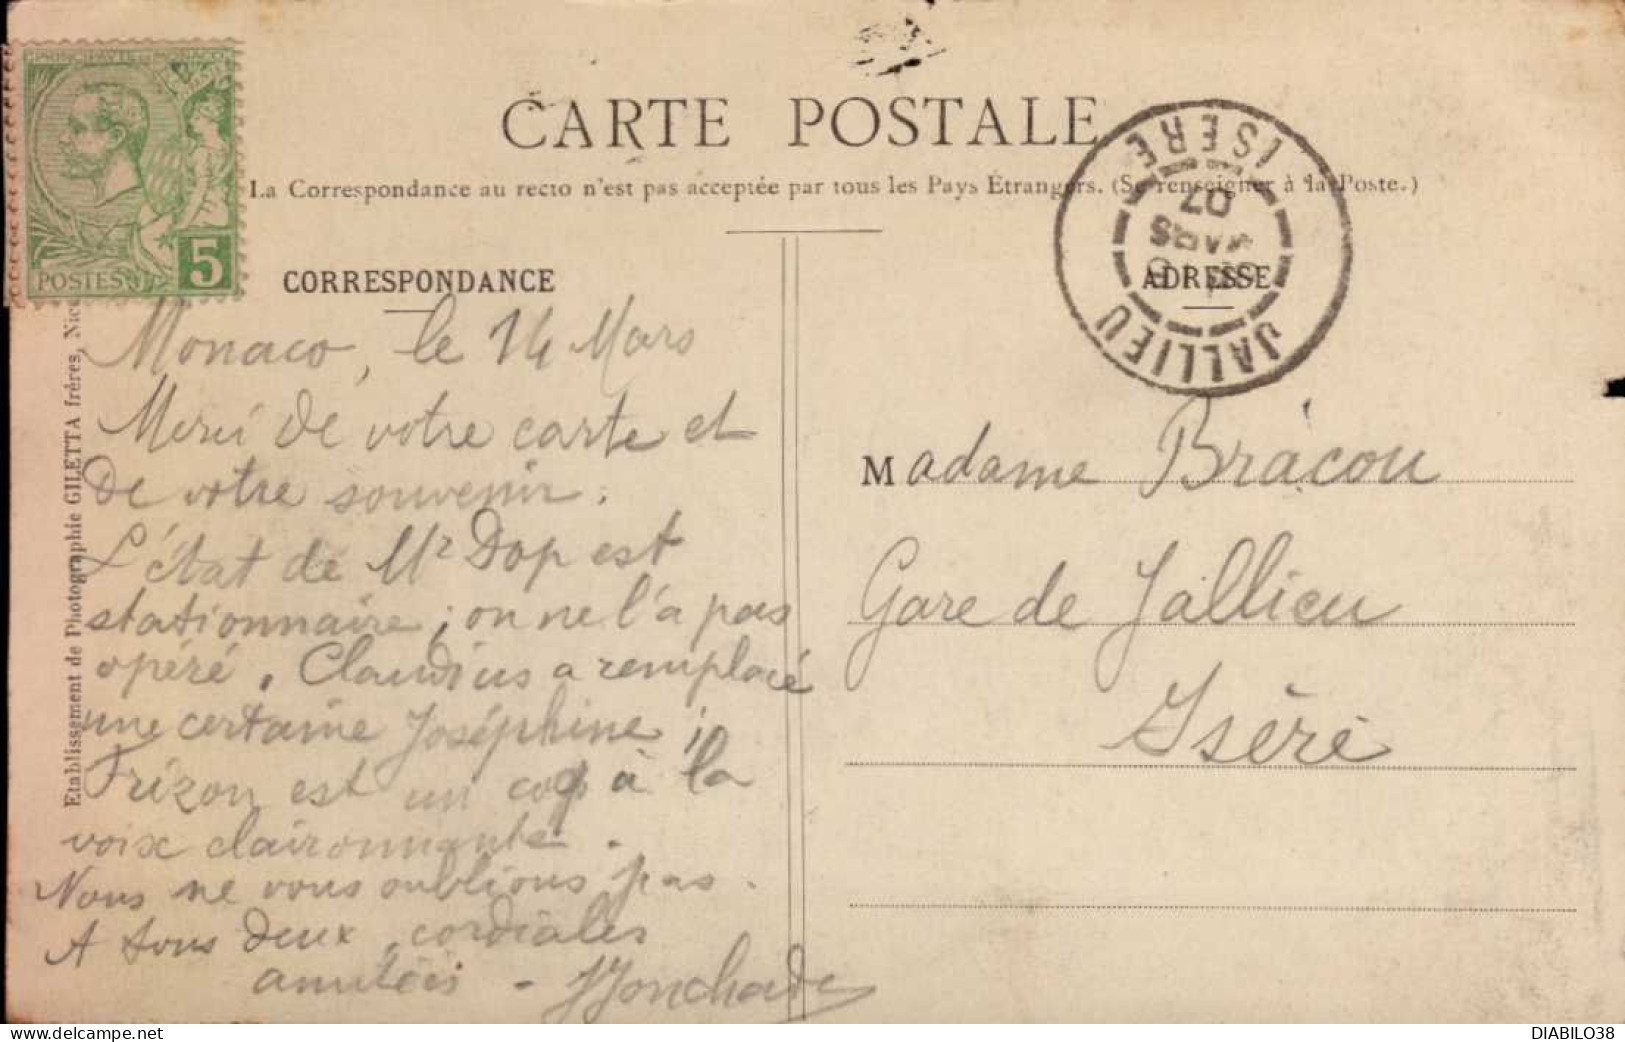 PRINCIPAUTÉ DE MONACO
POSTES
5
CARTE POSTALE
La Correspondance au recto n'est pas acceptée par tous les Pays Étrangers. (Se renseigner à la Poste.)
CORRESPONDANCE
Monaco, le 14 Mars
Merci de votre carte et
de votre souvenir.
L'état de Mr Dop est
stationnaire ; on ne l'a pas
opéré. Claudius a remplacé
une certaine Joséphine ;
Frizon est un coq à la
voix claironnante.
Nous ne vous oublions pas.
A tous deux, cordiales
amitiés -
Etablissement de Photographie GILETTA frères, Nice
ADRESSE
JALLIEU
MARS
07
ISERE
Madame Bracou
Gare de Jallieu
Isère
DIABILO38